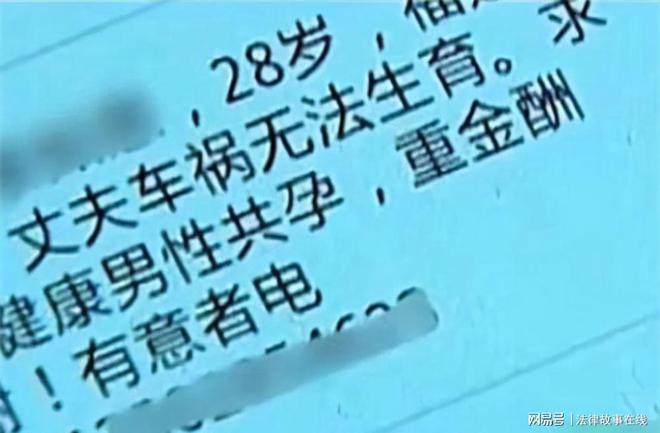 ，28岁，福
丈夫车祸无法生育。求
健康男性共孕，重金酬
谢！有意者电
网易号 | 法律故事在线